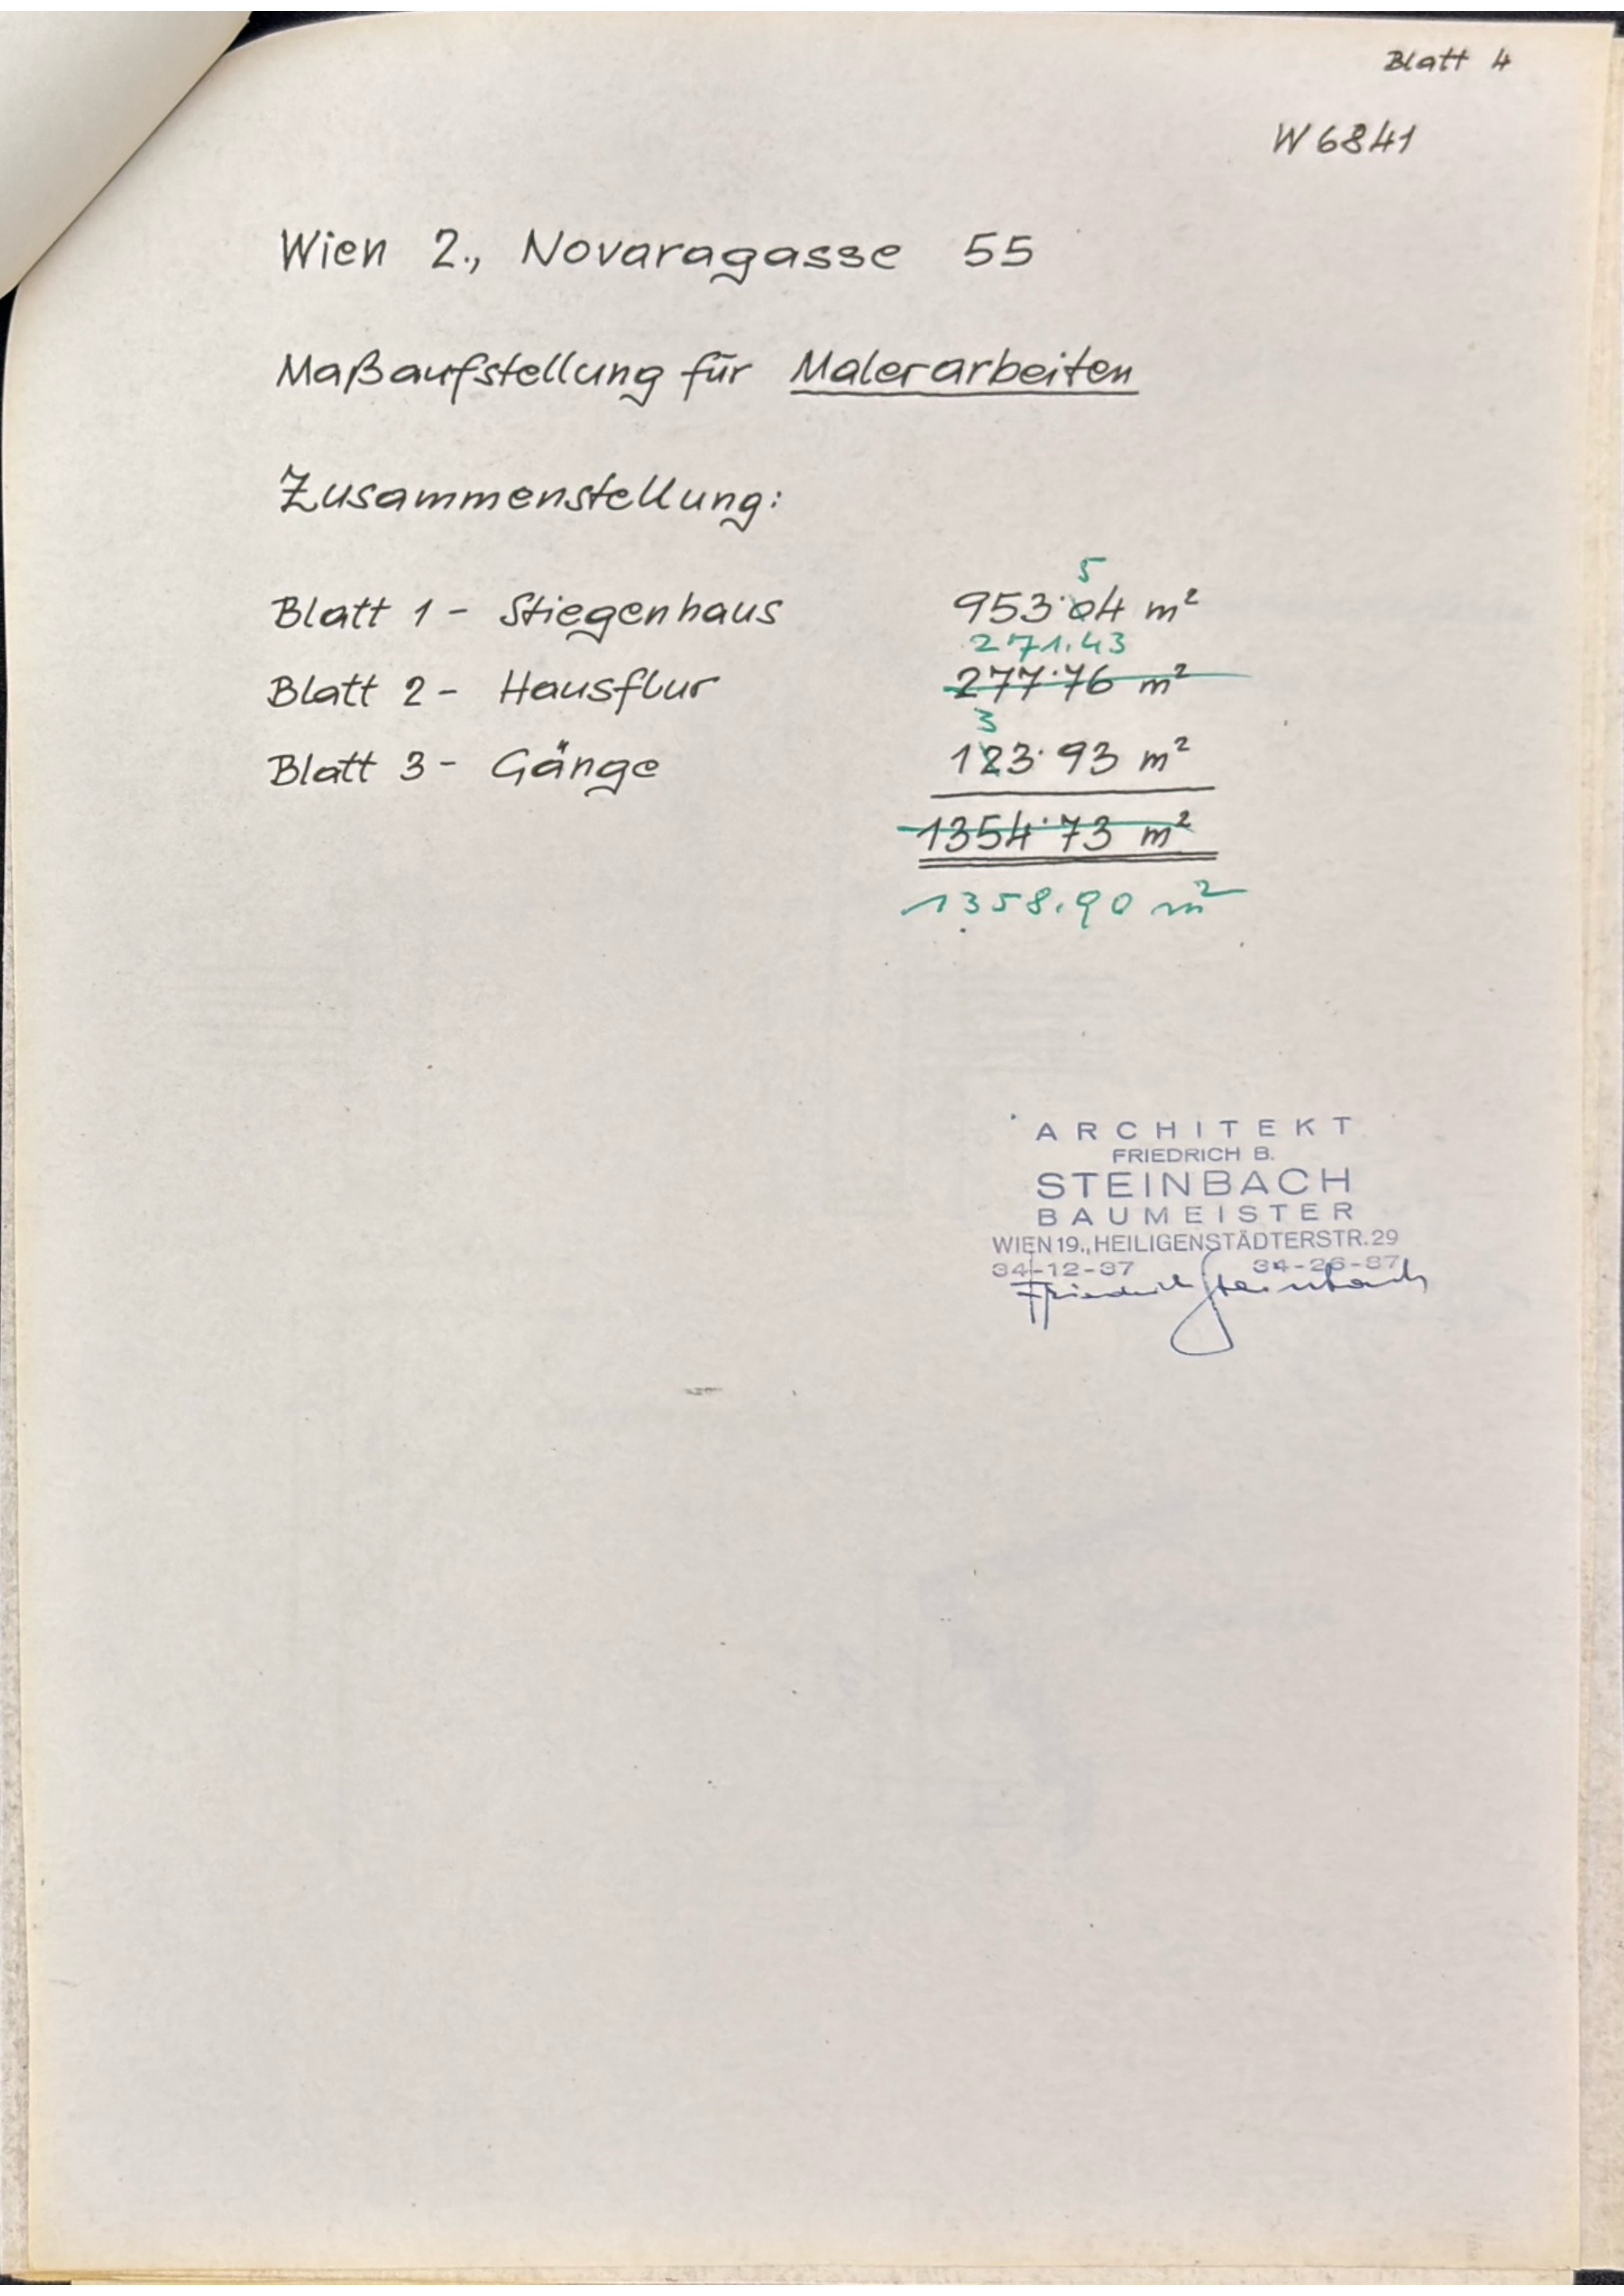 Blatt 4
W 6841
Wien 2., Novaragasse 55
Maßaufstellung für Malerarbeiten
Zusammenstellung:
5
Blatt 1 - Stiegenhaus 953·04 m²
271.43
Blatt 2 - Hausflur 277·76 m²
3
Blatt 3 - Gänge 123·93 m²
1354·73 m²
1358.90 m²
ARCHITEKT
FRIEDRICH B.
STEINBACH
BAUMEISTER
WIEN 19., HEILIGENSTÄDTERSTR. 29
34-12-37 34-26-87
Friedrich Steinbach